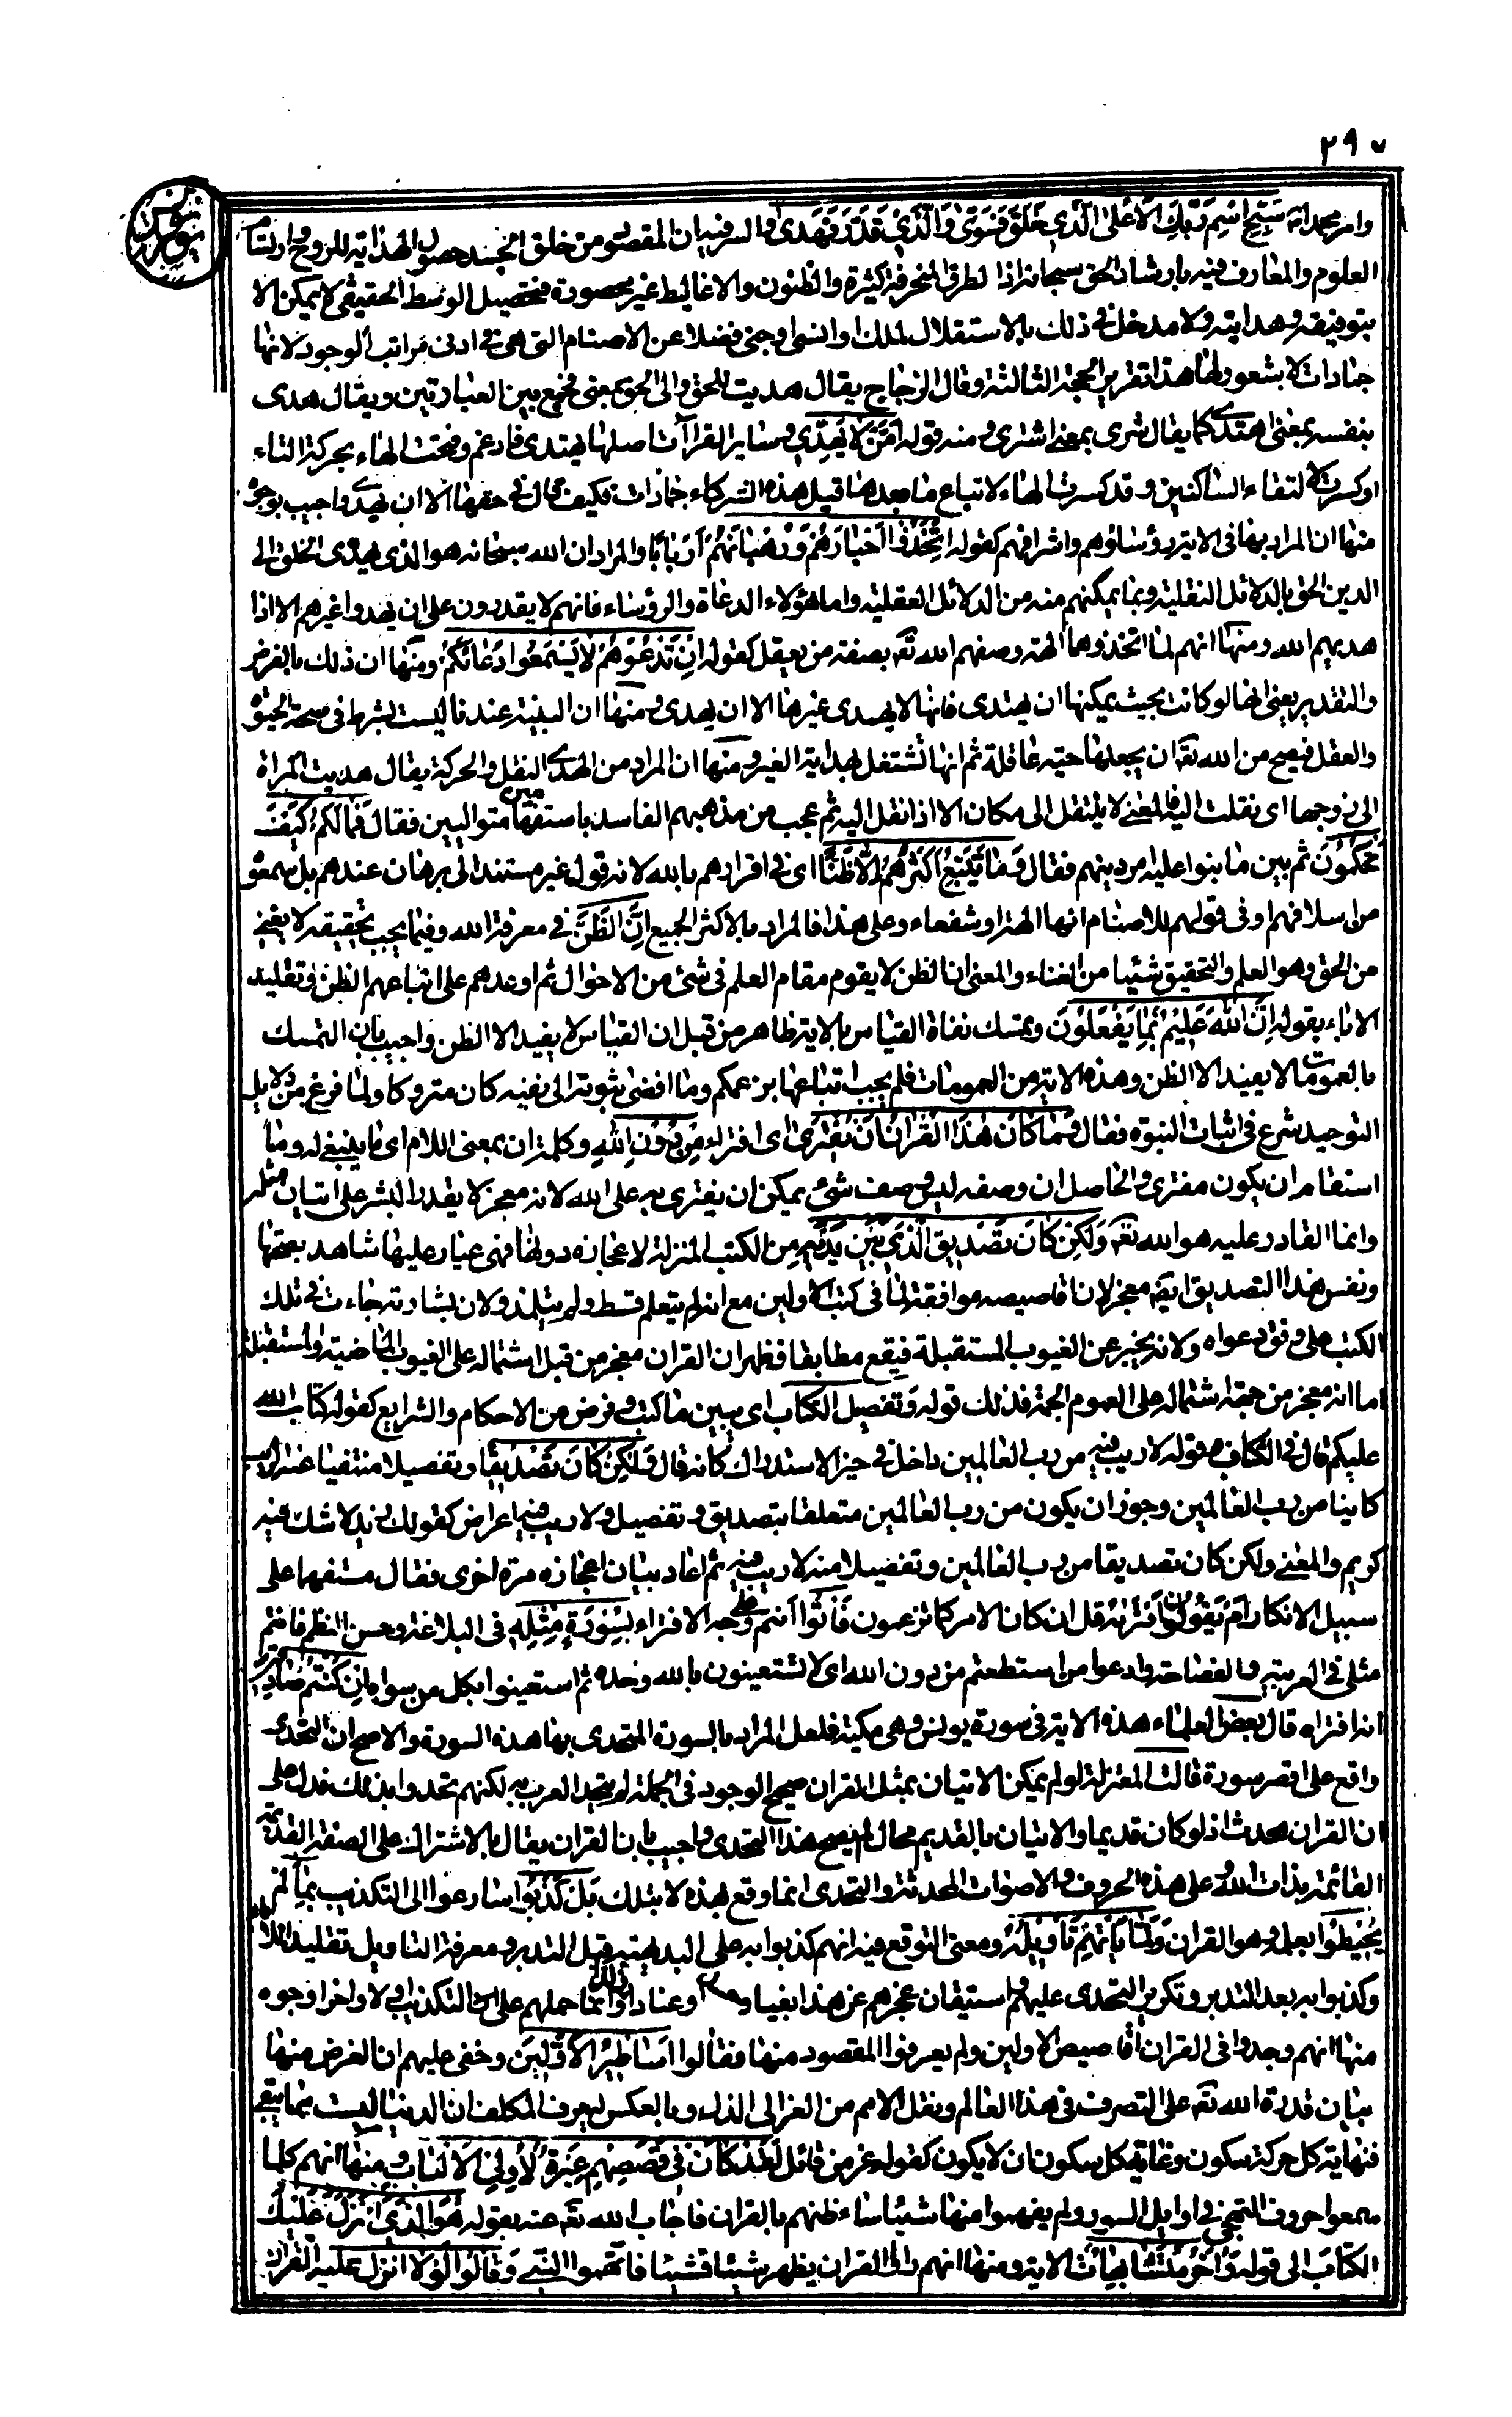 ٢٩٧
وامر محمدا ص سَبِّحِ اسْمَ رَبِّكَ الْاَعْلَى الَّذِي خَلَقَ فَسَوّىٰ وَالَّذِي قَدَّرَ فَهَدىٰ والسر فيه ان المقصود من خلق الجسد حصول الهداية للروح وارتسام
العلوم والمعارف فيه بارشاد الحق سبحانه اذا لطرق المنحرفة كثيرة والظنون والاغاليط غير محصورة فتحصيل الوسط الحقيقي لا يمكن الا
بتوفيقه وهدايته ولا مدخل في ذلك بالاستقلال لملك او انسى او جنى فضلا عن الاصنام التى هى في ادنى مراتب الوجود لانها
جمادات لا شعور لها هذا تقرير الحجة الثالثة وقال الزجاج يقال هديت للحق والى الحق بمعنى فجمع بين العبارتين ويقال هدى
بنفسه بمعنى اهتدى كما يقال شرى بمعنى اشترى ومنه قوله اَمَّنْ لا يَهِدِّي وساير القراآت اصلها يهتدى فادغم وفتحت الهاء بحركة التاء
او كسرت لالتقاء الساكنين وقد كسرت الهاء لاتباع ما بعدها قيل هذه الشركاء جمادات فكيف قال في حقها الا ان يهدى واجيب بوجوه
منها ان المراد بها في الاية رؤساؤهم واشرافهم كقوله اِتَّخَذُوا اَحْبارَهُمْ وَرُهْبانَهُمْ اَرْبابًا والمراد ان الله سبحانه هو الذى يهدى الخلق الى
الدين الحق بالدلائل النقلية وبما يمكنهم منه من الدلائل العقلية واما هؤلاء الدعاة والرؤساء فانهم لا يقدرون على ان يهدوا غيرهم الا اذا
هديهم الله ومنها انهم لما اتخذوها الهة وصفهم الله تعه بصفة من يعقل كقوله اِنْ تَدْعُوهُمْ لا يَسْمَعُوا دُعائَكُمْ ومنها ان ذلك بالفرض
والتقدير يعنى انها لو كانت بحيث يمكنها ان يهتدى فانها لا يهدى غيرها الا ان يهدى ومنها ان البنية عندنا ليست بشرط في صحة الحيوة
والعقل فيصح من الله تعه ان يجعلها حية عاقلة ثم انها تشتغل بهداية الغير ومنها ان المراد من الهدى النقل والحركة يقال هديت المراة
الى زوجها اى نقلت اليه فالمعنى لا ينتقل الى مكان الا اذا نقل اليه ثم عجب من مذهبهم الفاسد باستفهامين متواليين فقال فَمالَكُمْ كَيْفَ
تَحْكُمُونَ ثم بين ما بنوا عليه امر دينهم فقال وَما يَتَّبِعُ اَكْثَرُهُمْ اِلّا ظَنًّا اى في اقرارهم بالله لانه قول غير مستند الى برهان عندهم بل سمعوه
من اسلافهم او فى قولهم للاصنام انها الهة او شفعاء وعلى هذا فالمراد بالاكثر الجميع اِنَّ الظَّنَّ في معرفة الله وفيما يجب تحقيقه لا يغني
من الحق وهو العلم والتحقيق شيئا من الغناء والمعنى ان الظن لا يقوم مقام العلم فى شئ من الاحوال ثم اوعدهم على اتباعهم الظن وتقليد
الاباء بقوله اِنَّ اللهَ عَلِيمٌ بِما يَفْعَلُونَ وتمسك نفاة القياس بالاية ظاهر من قبل ان القياس لا يفيد الا الظن واجيب بان التمسك
بالعمومات لا يفيد الا الظن وهذه الاية من العمومات فلم يجب اتباعها بزعمكم وما افضى ثبوته الى نفيه كان متروكا ولما فرغ من دلايل
التوحيد شرع في اثبات النبوة فقال وَما كانَ هذَا الْقُرْانُ اَنْ يُفْتَرىٰ اى افتراء مِنْ دُونِ اللهِ وكلمة ان بمعنى اللام اى ما ينبغى له وما
استقام ان يكون مفترى والحاصل ان وصفه ليس وصف شئ يمكن ان يفترى به على الله لانه معجز لا يقدر البشر على اتيان مثله
وانما القادر عليه هو الله تعه وَلٰكِنْ كانَ تَصْدِيقَ الَّذِي بَيْنَ يَدَيْهِ من الكتب المنزلة لاعجازه دونها فهى عيار عليها شاهد بصحتها
ونفس هذا التصديق ايضا معجز لان اقاصيصه موافقة لما في كتب الاولين مع انه لم يتعلم قط ولم يتلمذ ولان بشارته جاءت في تلك
الكتب على وفق دعواه ولانه يخبر عن الغيوب المستقبلة فيقع مطابقا فظهر ان القران معجز من قبل اشتماله على الغيوب الماضية والمستقبلة
اما انه معجز من جهة اشتماله على العلوم الجمة فذلك قوله وَتَفْصِيلَ الْكِتابِ اى يبين ما كتب وفرض من الاحكام والشرايع كقوله كتاب الله
عليكم قال في الكشاف وقوله لا ريب فيه من رب العالمين داخل في حيز الاستدراك كانه قال وَلٰكِنْ كانَ تَصْدِيقًا وتفصيلا منتفيا عنه الريب
كاينا من رب العالمين وجوز ان يكون من رب العالمين متعلقا بتصديق وتفصيل ولا ريب فيه اعتراض كقولك زيد لا شك فيه
كريم والمعنى ولكن كان تصديقا من رب العالمين وتفصيلا منه لا ريب فيه ثم اعاد بيان اعجازه مرة اخرى فقال مستفهما على
سبيل الانكار اَمْ يَقُولُونَ افْتَرٰيهُ قل ان كان الامر كما تزعمون فَأْتُوا اَنتم على وجه الافتراء بِسُورَةٍ مِثْلِهِ في البلاغة وحسن النظم فانتم
مثلى في العربية والفصاحة وادعوا من استطعتم من دون الله اى لا تستعينون بالله وحده ثم استعينوا بكل من سواه اِنْ كُنْتُمْ صادِقِينَ
انه افتراه قال بعض العلماء هذه الاية في سورة يونس وهى مكية فلعل المراد بالسورة المتحدى بها هذه السورة والاصح ان التحدى
واقع على اقصر سورة قالت المعتزلة لو لم يمكن الاتيان بمثل القران صحيح الوجود في الجملة لم يتحد العرب به لكنهم تحدوا بذلك فدل على
ان القران محدث اذ لو كان قديما والاتيان بالقديم محال لم يصح هذا التحدى واجيب بان القران يقال بالاشتراك على الصفة القديمة
القائمة بذات الله وعلى هذه الحروف والاصوات المحدثة والتحدى انما وقع بهذه لا بتلك بَلْ كَذَّبُوا سارعوا الى التكذيب بِما لَمْ
يُحِيطُوا بعلمه وهو القران وَلَمّا يَأْتِهِمْ تَأْوِيلُهُ ومعنى التوقع فيه انهم كذبوا به على البديهة قبل التدبر ومعرفة التاويل تقليدا للاباء
وكذبوا به بعد التدبر وتكرير التحدى عليهم واستيقان عجزهم عن هذا بغيا وعنادا وانما حملهم على التكذيب اولا واخرا وجوه
منها انهم وجدوا في القران اقاصيص الاولين ولم يعرفوا المقصود منها فقالوا اَساطِيرُ الْاَوَّلِينَ وخفى عليهم ان الغرض منها
بيان قدرة الله تعه على التصرف في هذا العالم ونقل الامم من العز الى الذل وبالعكس ليعرف المكلف ان الدنيا ليست مما يبقى
فنهاية كل حركة سكون وغاية كل سكون ان لا يكون كقوله عز من قائل لَقَدْ كانَ فِي قَصَصِهِمْ عِبْرَةٌ لِاُولِي الْاَلْبابِ ومنها انهم كلما
سمعوا حروف التهجى في اوايل السور ولم يفهموا منها شيئا ساء ظنهم بالقران فاجاب الله تعه عنه بقوله هُوَ الَّذِي اَنْزَلَ عَلَيْكَ
الْكِتابَ الى قوله وَاُخَرُ مُتَشابِهاتٌ الاية ومنها انهم راوا القران يظهر شيئا فشيئا فاتهموا النبى وَقالُوا لَوْلا انزل عليه القران